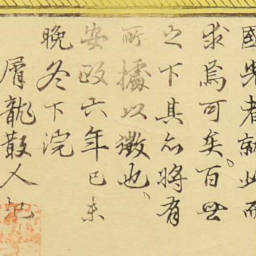 国先者就此而
求焉可矣百世
之下其亦将有
所據以徴也
安政六年己未
晩冬下浣
屑龍散人記